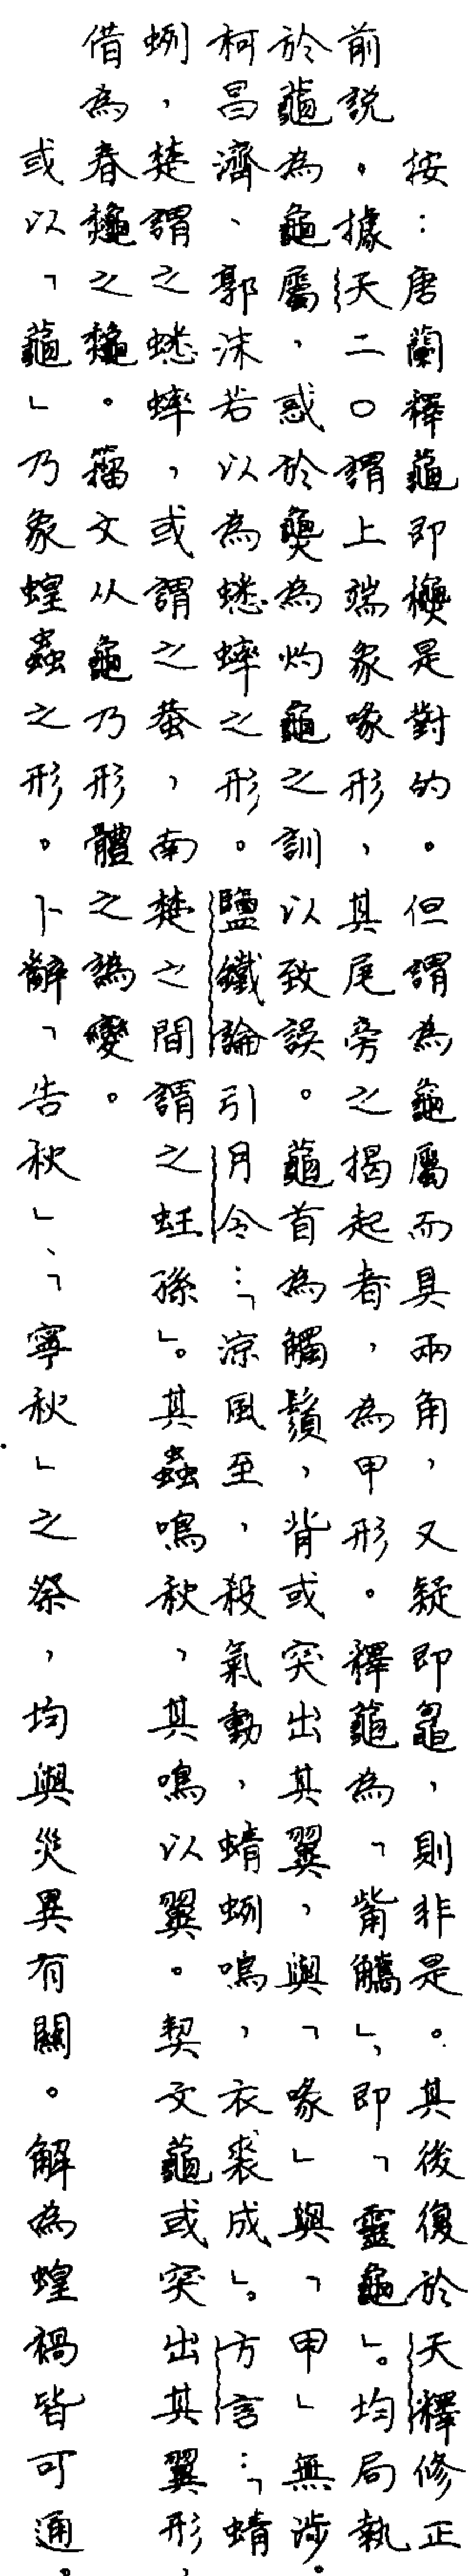 按：唐蘭釋龝即𪛁是對的。但謂為龜屬而具兩角，又疑即鼂，則非是。其後復於天釋修正
前說。據天二〇謂上端象喙形，其尾旁之揭起者，為甲形。釋龝為「觜觿」，即「靈龜」。均局執
於龝為龜屬，惑於𤒅為灼龜之訓以致誤。龝首為觸鬚，背或突出其翼，與「喙」與「甲」無涉。
柯昌濟、郭沫若以為蟋蟀之形。鹽鐵論引月令：「涼風至，殺氣動，蜻蛚鳴，衣裘成」。方言：「蜻
蛚，楚謂之蟋蟀，或謂之蛬，南楚之間謂之蚟孫」。其蟲鳴秋，其鳴以翼。契文龝或突出其翼形，
借為春龝之龝。籀文从龜乃形體之譌變。
或以「龝」乃象蝗蟲之形。卜辭「告秋」、「寧秋」之祭，均與災異有關。解為蝗禍皆可通。